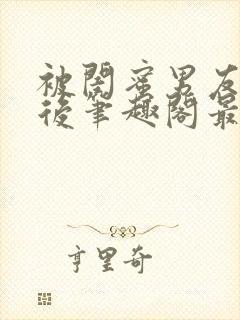 被閣蜜男友
後筆趣閣最
亨里奇